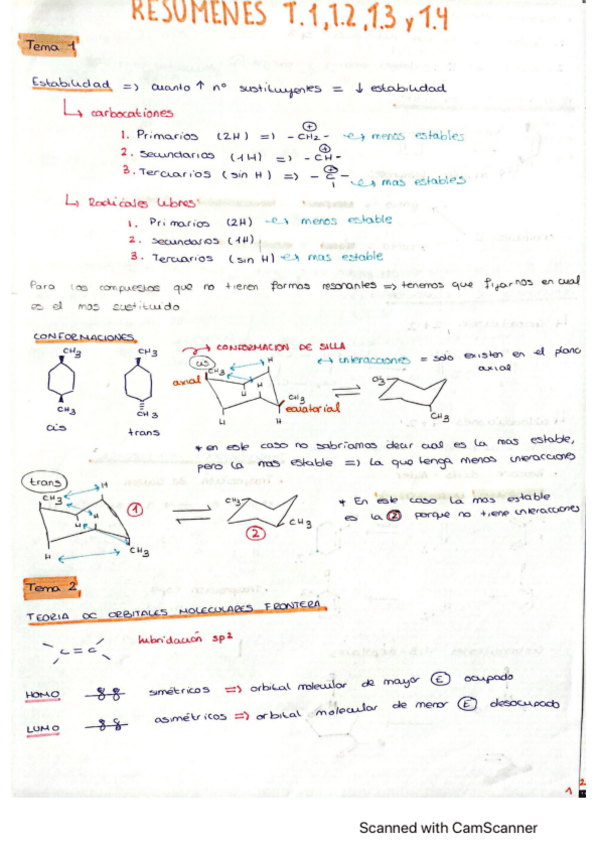 RESUMENES T.1, 1.2, 1.3 y 1.4
Tema 1
Estabilidad => cuanto ↑ nº sustituyentes = ↓ estabilidad
↳ carbocationes
1. Primarios (2H) => -CH2- ⊕ → menos estables
2. Secundarios (1H) => -CH- ⊕
3. Terciarios (sin H) => -C- ⊕ → mas estables
↳ Radicales libres
1. Primarios (2H) → menos estable
2. Secundarios (1H)
3. Terciarios (sin H) → mas estable
Para los compuestos que no tienen formas resonantes => tenemos que fijarnos en cual
es el mas sustituido
CONFORMACIONES
CH3 CH3
CH3 CH3
cis trans
→ CONFORMACION DE SILLA
cis ↔ interacciones = solo existen en el plano
axial
axial CH3 H H H CH3
ecuatorial
H H
CH3 CH3
* en este caso no sabriamos decir cual es la mas estable,
pero la mas estable => la que tenga menos interacciones
trans
CH3 H H H CH3
①
CH3 CH3
②
* En este caso la mas estable
es la ② porque no tiene interacciones
Tema 2
TEORIA DE ORBITALES MOLECULARES FRONTERA
C=C hibridación sp2
HOMO simétricos => orbital molecular de mayor Ⓔ ocupado
LUMO asimétricos => orbital molecular de menor Ⓔ desocupado
1
2
Scanned with CamScanner